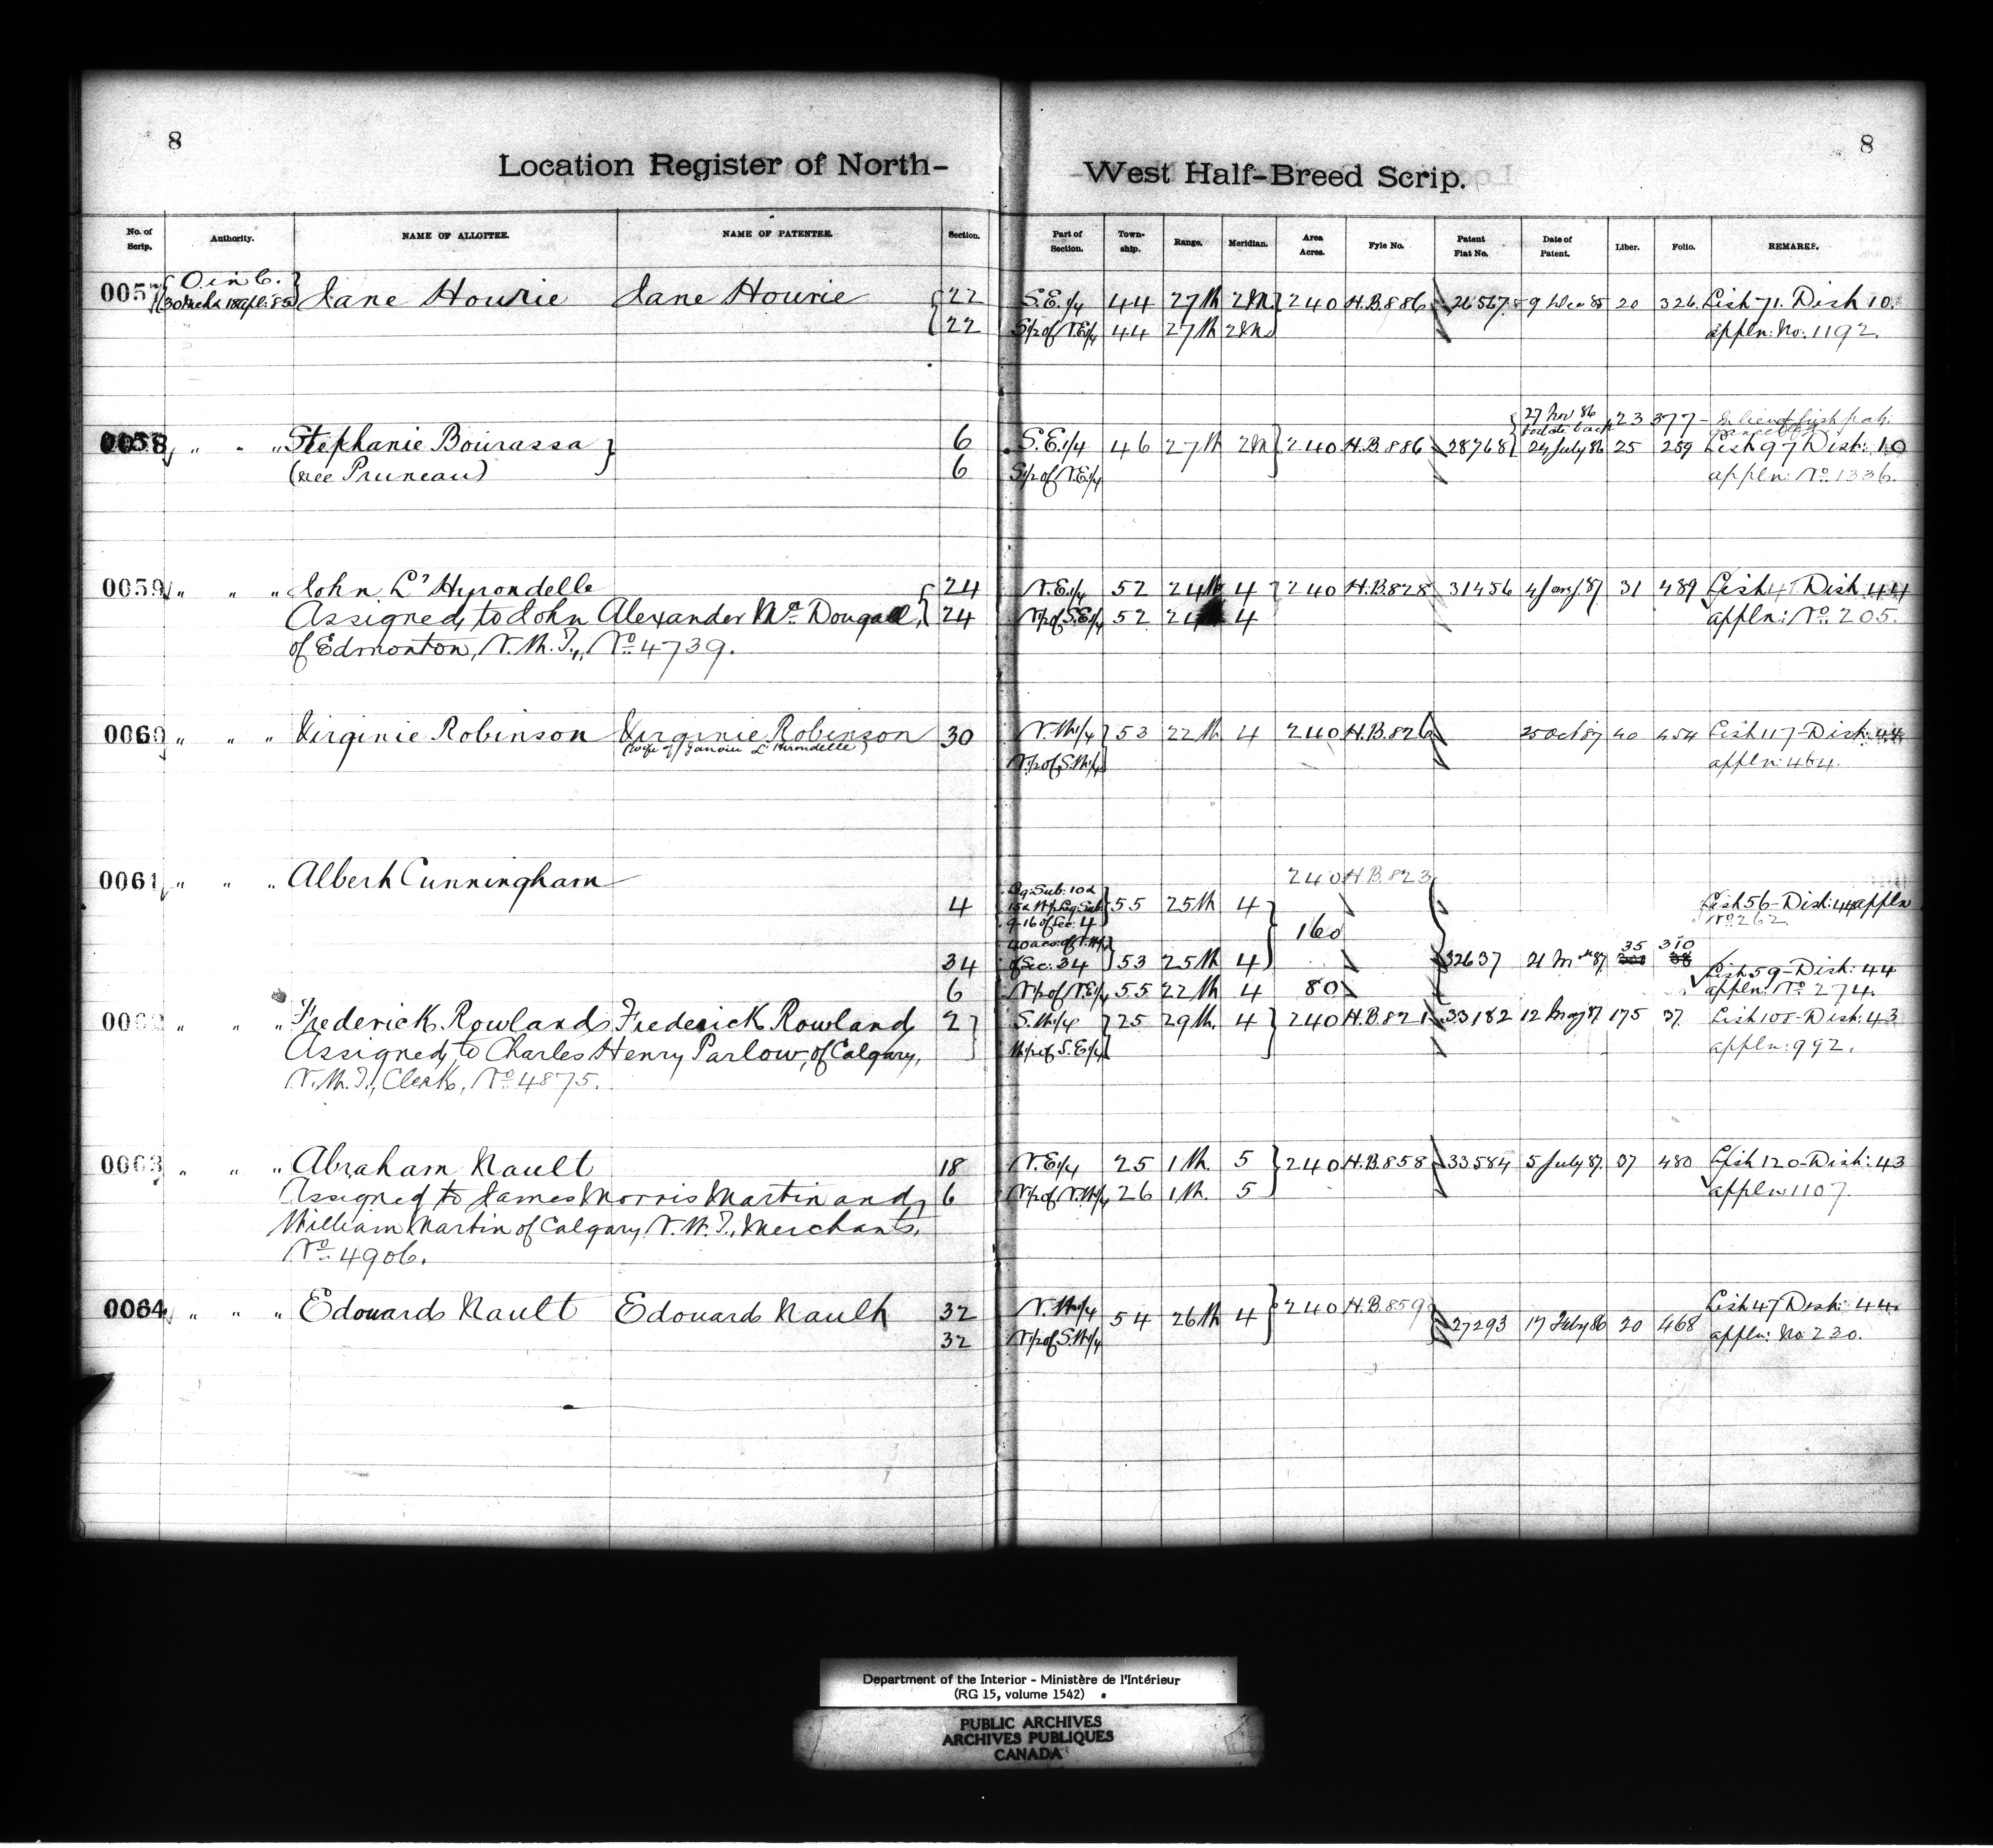 8
8
Location Register of North-
West Half-Breed Scrip.
No. of Scrip. Authority. NAME OF ALLOTTEE. NAME OF PATENTEE. Section. Part of Section. Town-ship. Range. Meridian. Area Acres. Fyle No. Patent Fiat No. Date of Patent. Liber. Folio. REMARKS.
O. in C.
0057 30 Mch & 18 Apl: 85 Jane Hourie Jane Hourie 22 S.E.1/4 44 27 W 2M 240 H.B. 886 26567 9 Dec 85 20 326 List 71. Dist 10.
22 S½ of N.E.1/4 44 27 W 2M appln: No. 1192.
27 Nov 86 23 377 - In lieu of
0058 " " " Stephanie Bourassa 6 S.E.1/4 46 27 W 2M 240 H.B. 886 28768 24 July 86 25 259 List 97 Dist: 10
(née Pruneau) 6 S½ of N.E.1/4 appln: No. 1336.
0059 " " " John L'Hyrondelle 24 N.E.1/4 52 24 W 4 240 H.B. 828 31456 4 Jany 87 31 489 List 41 Dist 44
Assigned to John Alexander Mc Dougall, 24 N½ of S.E.1/4 52 24 4 appln: No. 205.
of Edmonton, N.W.T., No. 4739.
0060 " " " Virginie Robinson Virginie Robinson 30 N.W.1/4 53 22 W 4 240 H.B. 826 25 Oct 87 40 454 List 117 - Dist: 44
(wife of Janvier L'Hirondelle) N½ of S.W.1/4 appln: 464.
0061 " " " Albert Cunningham 240 H.B. 823
Lg: Sub: 10 &
4 15 & W½ Leg: Sub: 55 25 W 4 List 56 - Dist: 44 appln
9 - 16 of Sec: 4 No. 262
160
40 acs. of N.W.1/4 35 310
34 of Sec: 34 53 25 W 4 32637 21 Mch 87 List 59 - Dist: 44
6 N½ of N.E.1/4 55 22 W 4 80 appln: No. 274.
0062 " " " Frederick Rowland Frederick Rowland 2 S.W.1/4 25 29 W. 4 240 H.B. 821 33182 12 May 87 175 37 List 108 - Dist: 43
Assigned to Charles Henry Parlow, of Calgary, W½ of S.E.1/4 appln: 992.
N.W.T., Clerk, No. 4875.
0063 " " " Abraham Nault 18 N.E.1/4 25 1 W. 5 240 H.B. 858 33584 5 July 87 37 480 List 120 - Dist: 43
Assigned to James Morris Martin and 6 N½ of N.W.1/4 26 1 W. 5 appln: 1107.
William Martin of Calgary, N.W.T., Merchants,
No. 4906.
0064 " " " Edouard Nault Edouard Nault 32 N.W.1/4 54 26 W 4 240 H.B. 859 27293 17 Feby 86 20 468 List 47 Dist: 44.
32 N½ of S.W.1/4 appln: No. 220.
Department of the Interior - Ministère de l'Intérieur
(RG 15, volume 1542)
PUBLIC ARCHIVES
ARCHIVES PUBLIQUES
CANADA